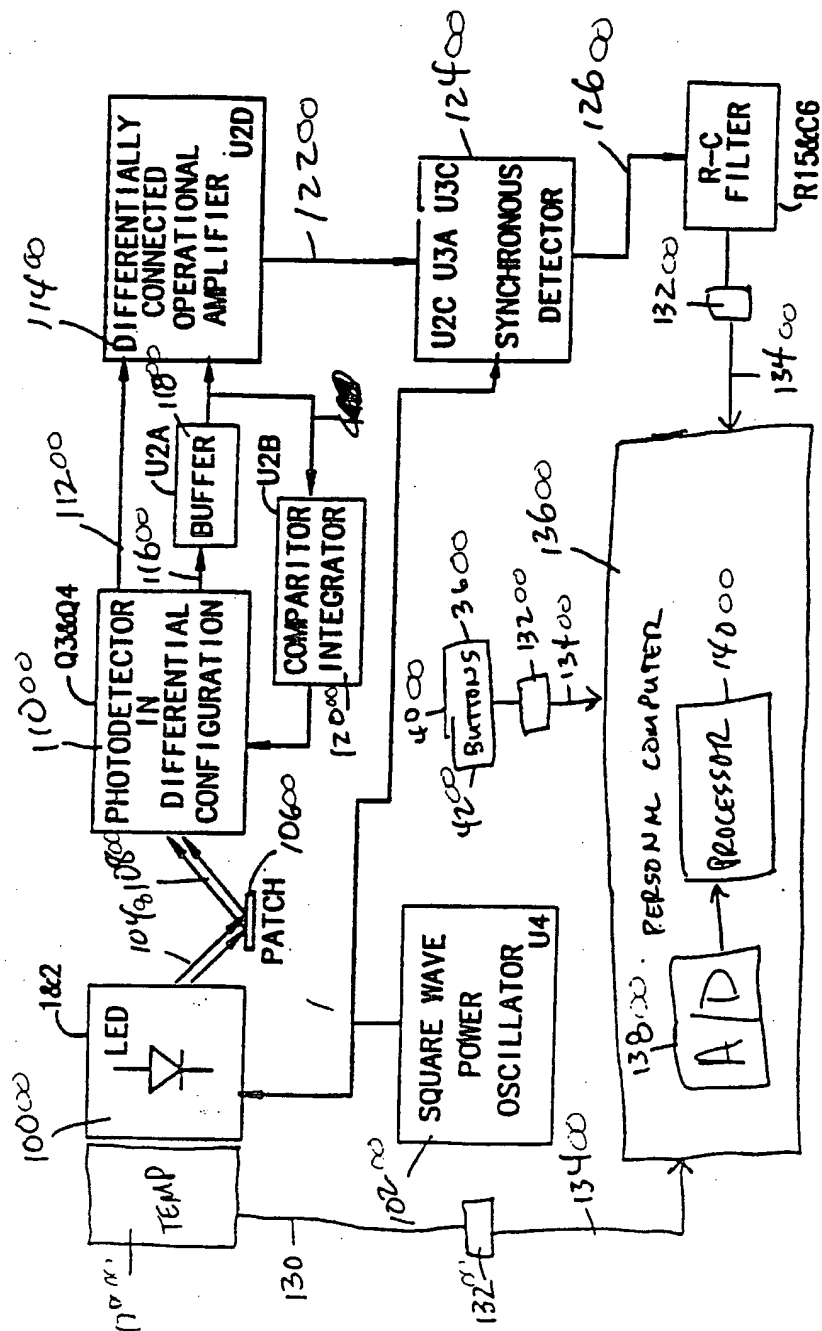 10000
1&2
LED
TEMP
130
13400
10200
SQUARE WAVE
POWER
OSCILLATOR
U4
104&10800
PATCH
10600
11000
Q3&Q4
PHOTODETECTOR
IN
DIFFERENTIAL
CONFIGURATION
11200
11600
U2A
BUFFER
11800
U2B
COMPARITOR
INTEGRATOR
12000
11400
DIFFERENTIALLY
CONNECTED
OPERATIONAL
AMPLIFIER
U2D
12200
12400
U2C U3A U3C
SYNCHRONOUS
DETECTOR
12600
R-C
FILTER
R15&C6
13200
13400
4000
4200
BUTTONS
3600
13200
13400
13600
PERSONAL COMPUTER
13800
A/D
PROCESSOR
14000